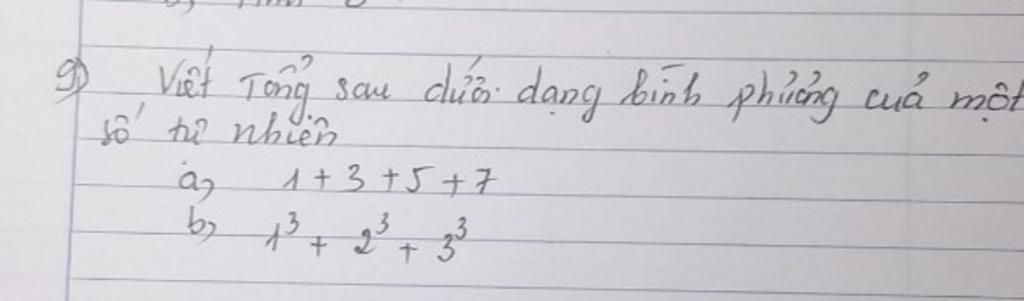 9) Viết Tổng sau dưới dạng bình phương của một
số tự nhiên
a, 1 + 3 + 5 + 7
b, 1³ + 2³ + 3³